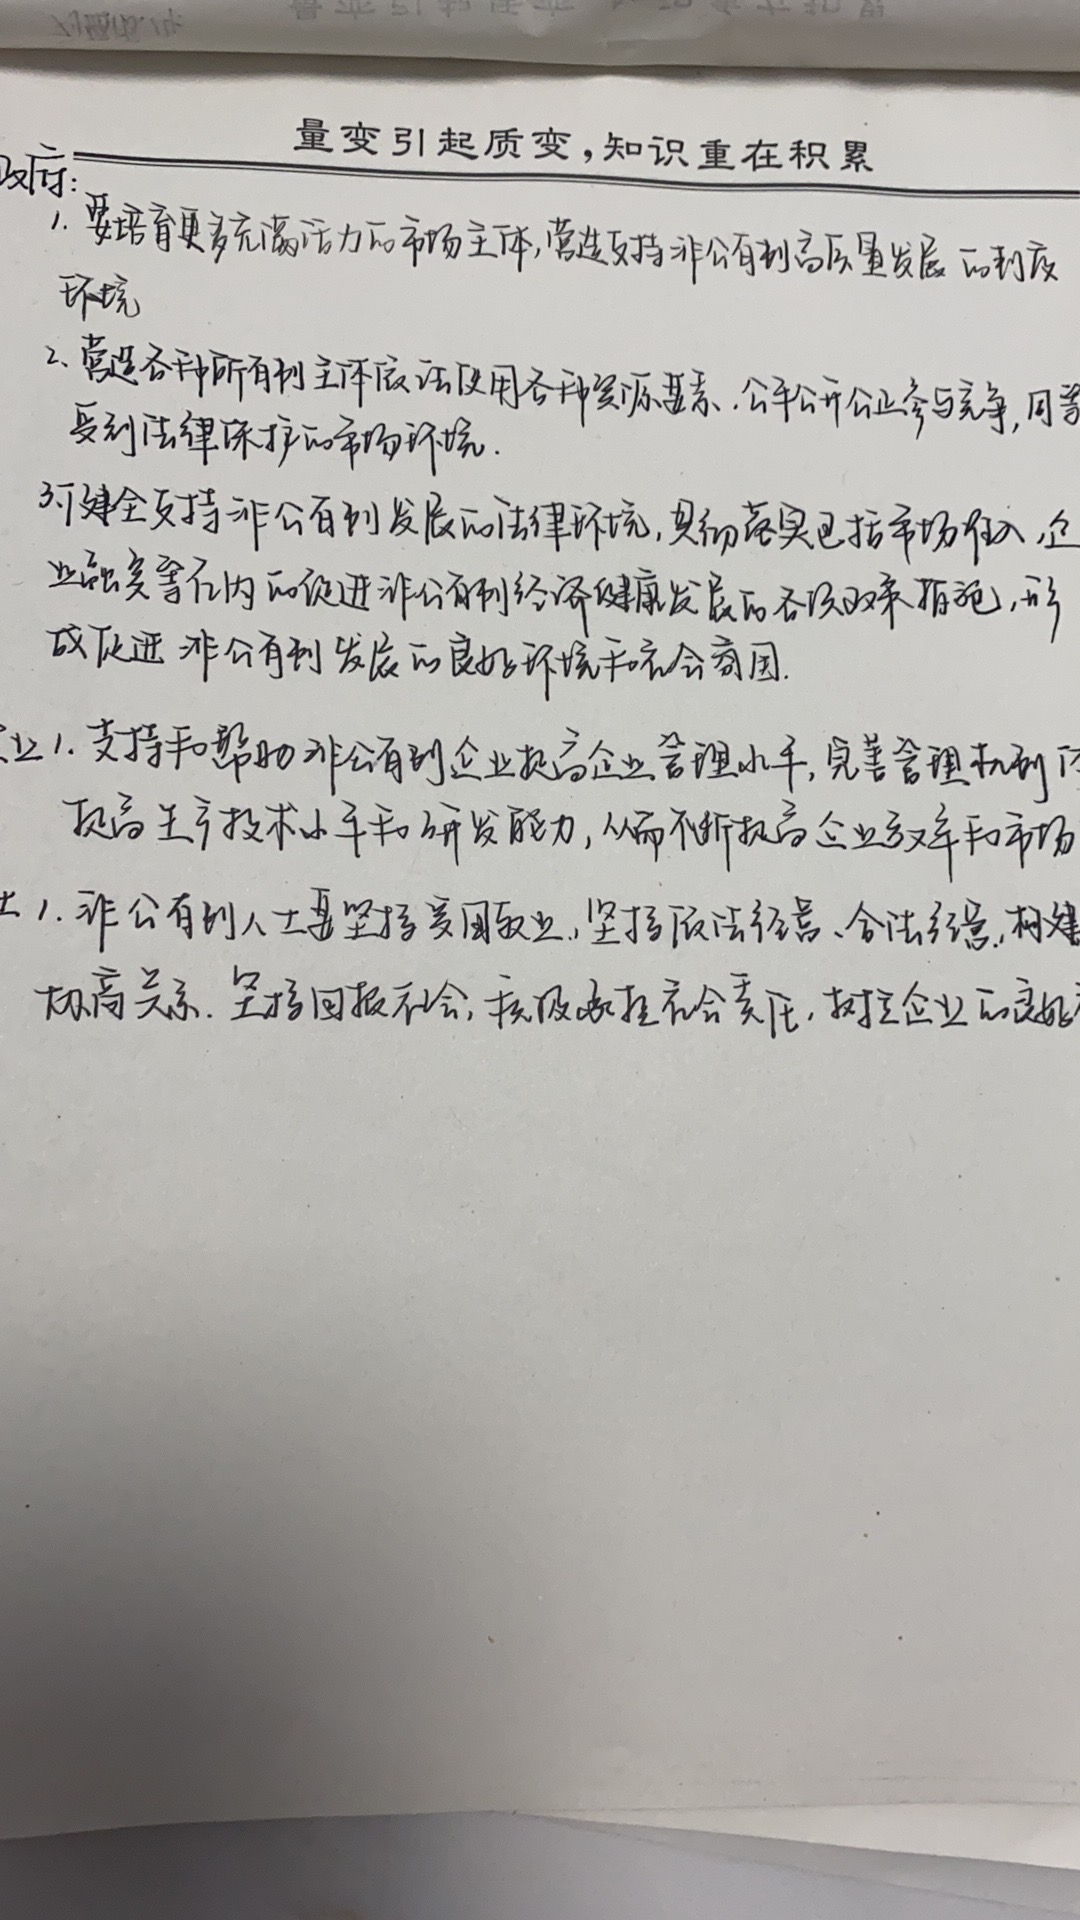 量变引起质变，知识重在积累
政府：
1. 要培育更多充满活力的市场主体，营造支持非公有制高质量发展的制度
环境
2、营造各种所有制主体依法使用各种资源要素、公平公开公正参与竞争，同等
受到法律保护的市场环境.
3、健全支持非公有制发展的法律环境，贯彻落实包括市场准入、企
业融资等在内的促进非公有制经济健康发展的各项政策措施，形
成促进非公有制发展的良好环境和社会氛围.
业 1. 支持和帮助非公有制企业提高企业管理水平，完善管理机制
提高生产技术水平和研发能力，从而不断提高企业效率和市场
士 1. 非公有制人士要坚持爱国敬业、坚持依法经营、合法经营、构建
协商关系. 坚持回报社会，积极承担社会责任，树立企业的良好